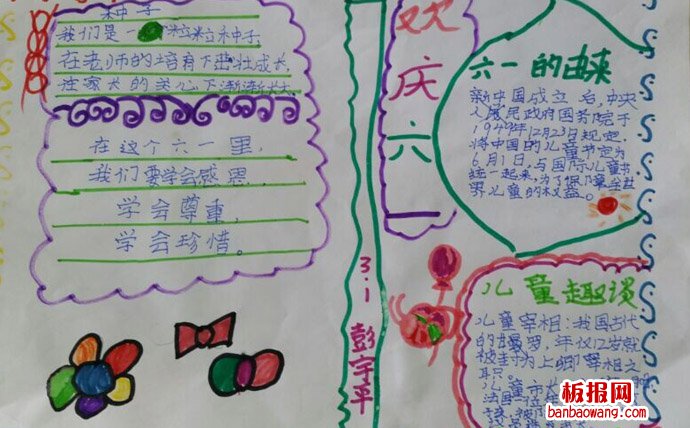 种子
我们是一颗粒粒种子,
在老师的培育下茁壮成长,
在家长的关心下渐渐长大
在这个六一里,
我们要学会感恩,
学会尊重,
学会珍惜。
欢
庆
六
一
3.1 彭宇平
六一的由来
新中国成立后,中央
人民政府国务院于
1949年12月23日规定,
将中国的儿童节定为
6月1日,与国际儿童节
统一起来。为了保障全世
界儿童的权益。
儿童趣谈
儿童宰相:我国古代
的甘罗,年仅12岁就
被封为上卿宰相之
职
儿童市
法国一位
板报网
banbaowang.com